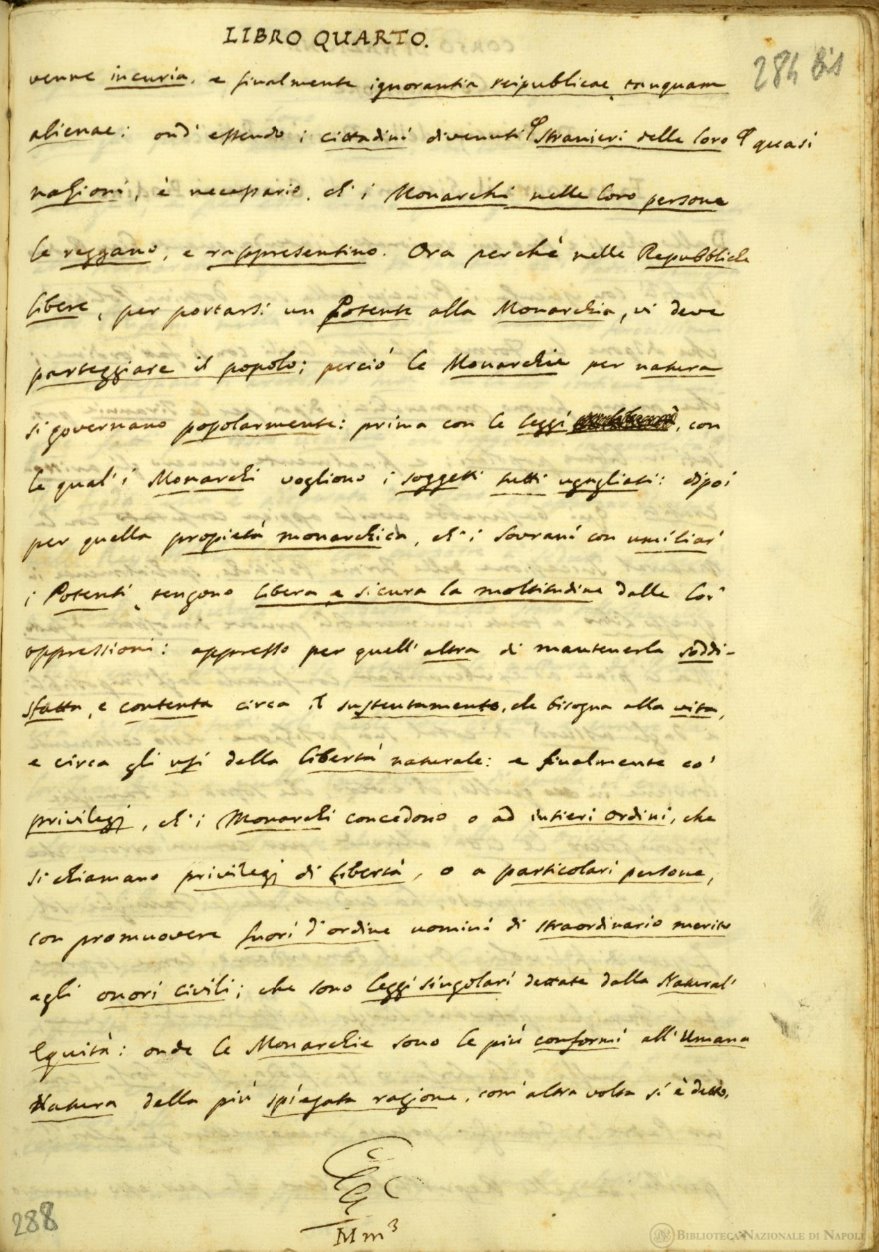 LIBRO QUARTO.
284 bis
venne incuria, e finalmente ignorantia reipublicae tanquam
alienae: ond' essendo i cittadini divenuti stranieri delle loro
quasi
nazioni, è necessario, ch' i Monarchi nelle loro persone
le reggano, e rappresentino. Ora perchè nelle Repubbliche
libere, per portarsi un Potente alla Monarchia, vi deve
parteggiare il popolo; perciò le Monarchie per natura
si governano popolarmente: prima con le leggi, con
le quali i Monarchi vogliono i soggetti tutti uguagliati: dipoi
per quella propietà monarchica, ch' i Sovrani con umiliar
i Potenti tengono libera e sicura la moltitudine dalle lor
oppressioni: appresso per quell' altra di mantenerla soddi-
sfatta, e contenta circa il sustentamento, che bisogna alla vita,
e circa gli usi della libertà naturale: e finalmente co'
privilegj, ch' i Monarchi concedono o ad intieri ordini, che
si chiamano privilegj di libertà, o a particolari persone,
con promuovere fuori d' ordine uomini di straordinario merito
agli onori civili; che sono leggi singolari dettate dalla Natural'
Equità: onde le Monarchie sono le più conformi all' Umana
Natura della più spiegata ragione, com' altra volta si è detto.
Mm3
288
BIBLIOTECA NAZIONALE DI NAPOLI